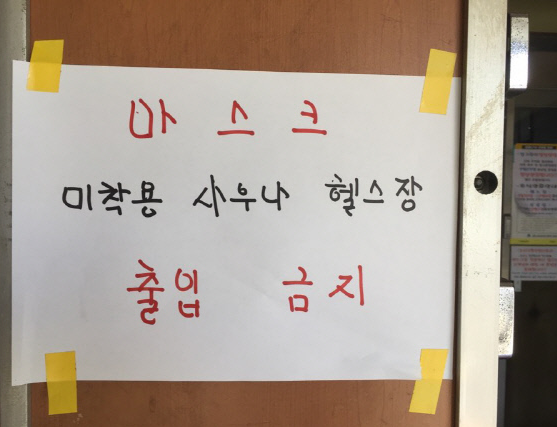 마스크
미착용 사우나 헬스장
출입 금지